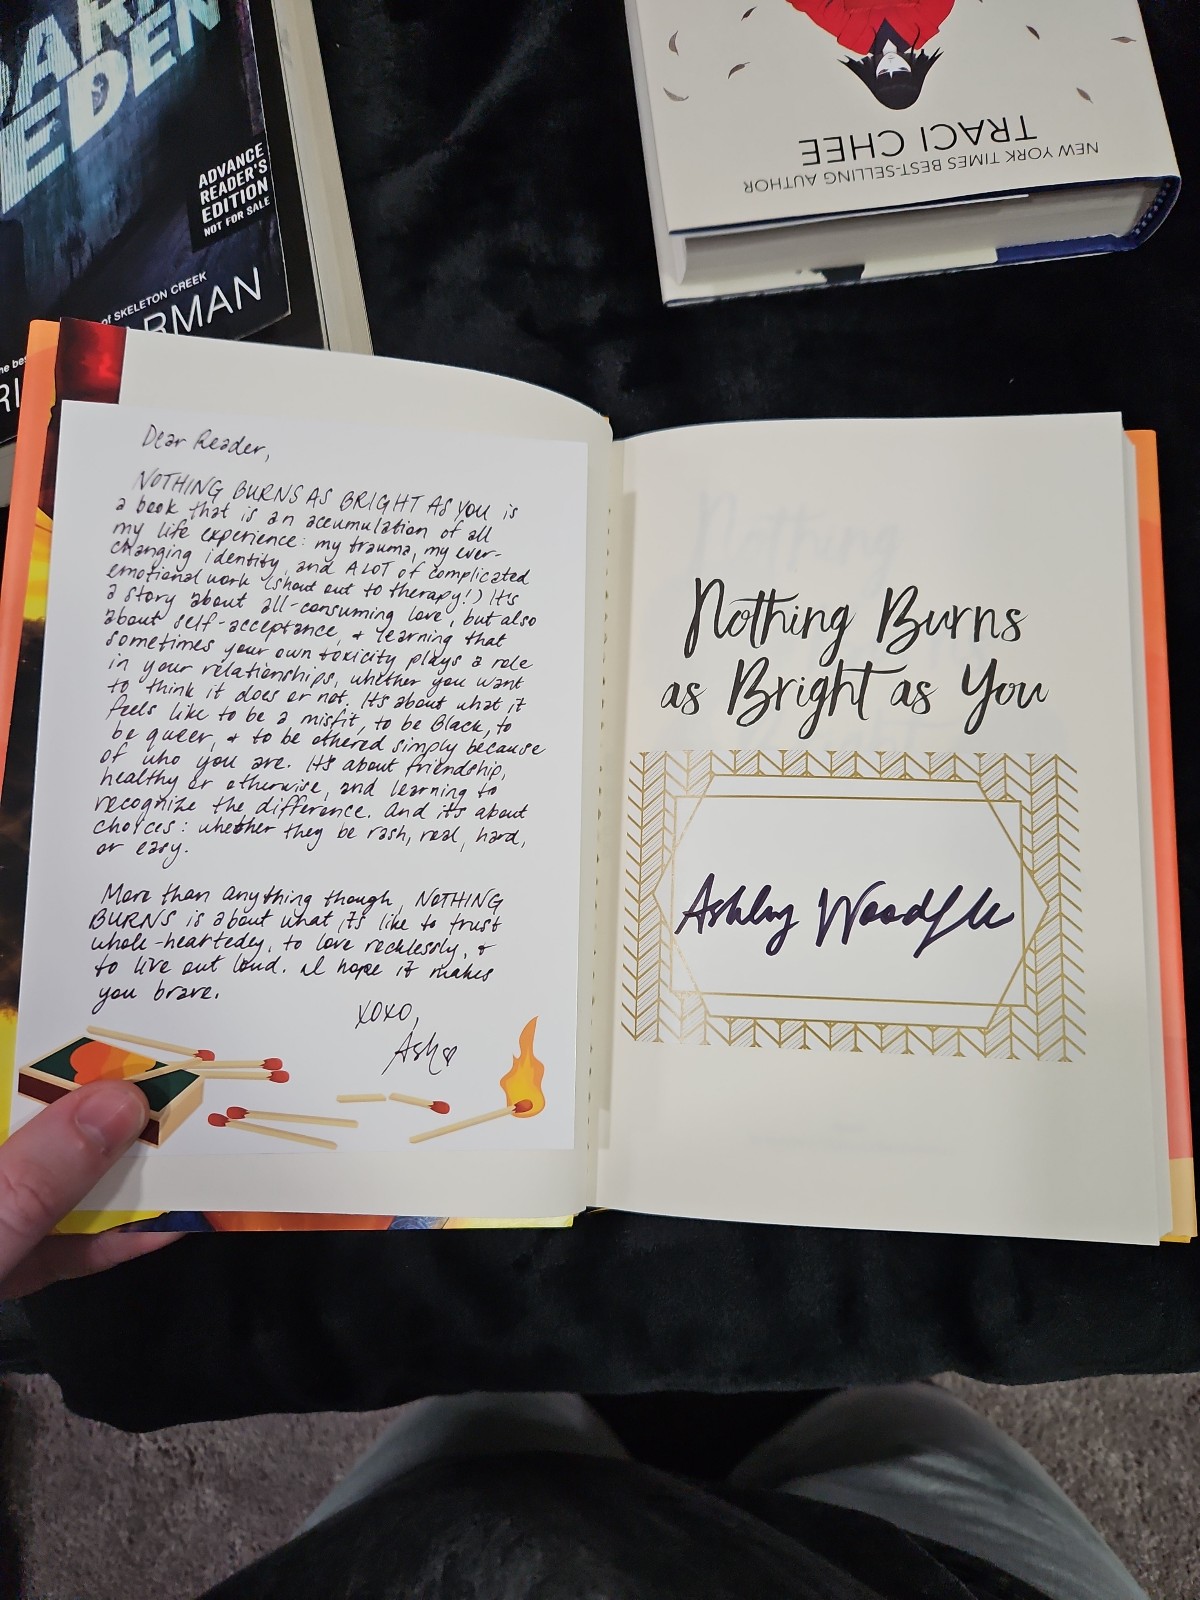 DARK
EDEN
ADVANCE
READER'S
EDITION
NOT FOR SALE
of SKELETON CREEK
RMAN
NEW YORK TIMES BEST-SELLING AUTHOR
TRACI CHEE
Dear Reader,
NOTHING BURNS AS BRIGHT AS YOU is
a book that is an accumulation of all
my life experience: my trauma, my ever-
changing identity, and A LOT of complicated
emotional work (shout out to therapy!) It's
a story about all-consuming love, but also
about self-acceptance, & learning that
sometimes your own toxicity plays a role
in your relationships, whether you want
to think it does or not. It's about what it
feels like to be a misfit, to be Black, to
be queer, & to be othered simply because
of who you are. It's about friendship,
healthy or otherwise, and learning to
recognize the difference. And it's about
choices: whether they be rash, real, hard,
or easy.
More than anything though, NOTHING
BURNS is about what it's like to trust
whole-heartedly, to love recklessly, &
to live out loud. I hope it makes
you brave.
XOXO,
Ash
Nothing Burns
as Bright as You
Ashley Woodfolk